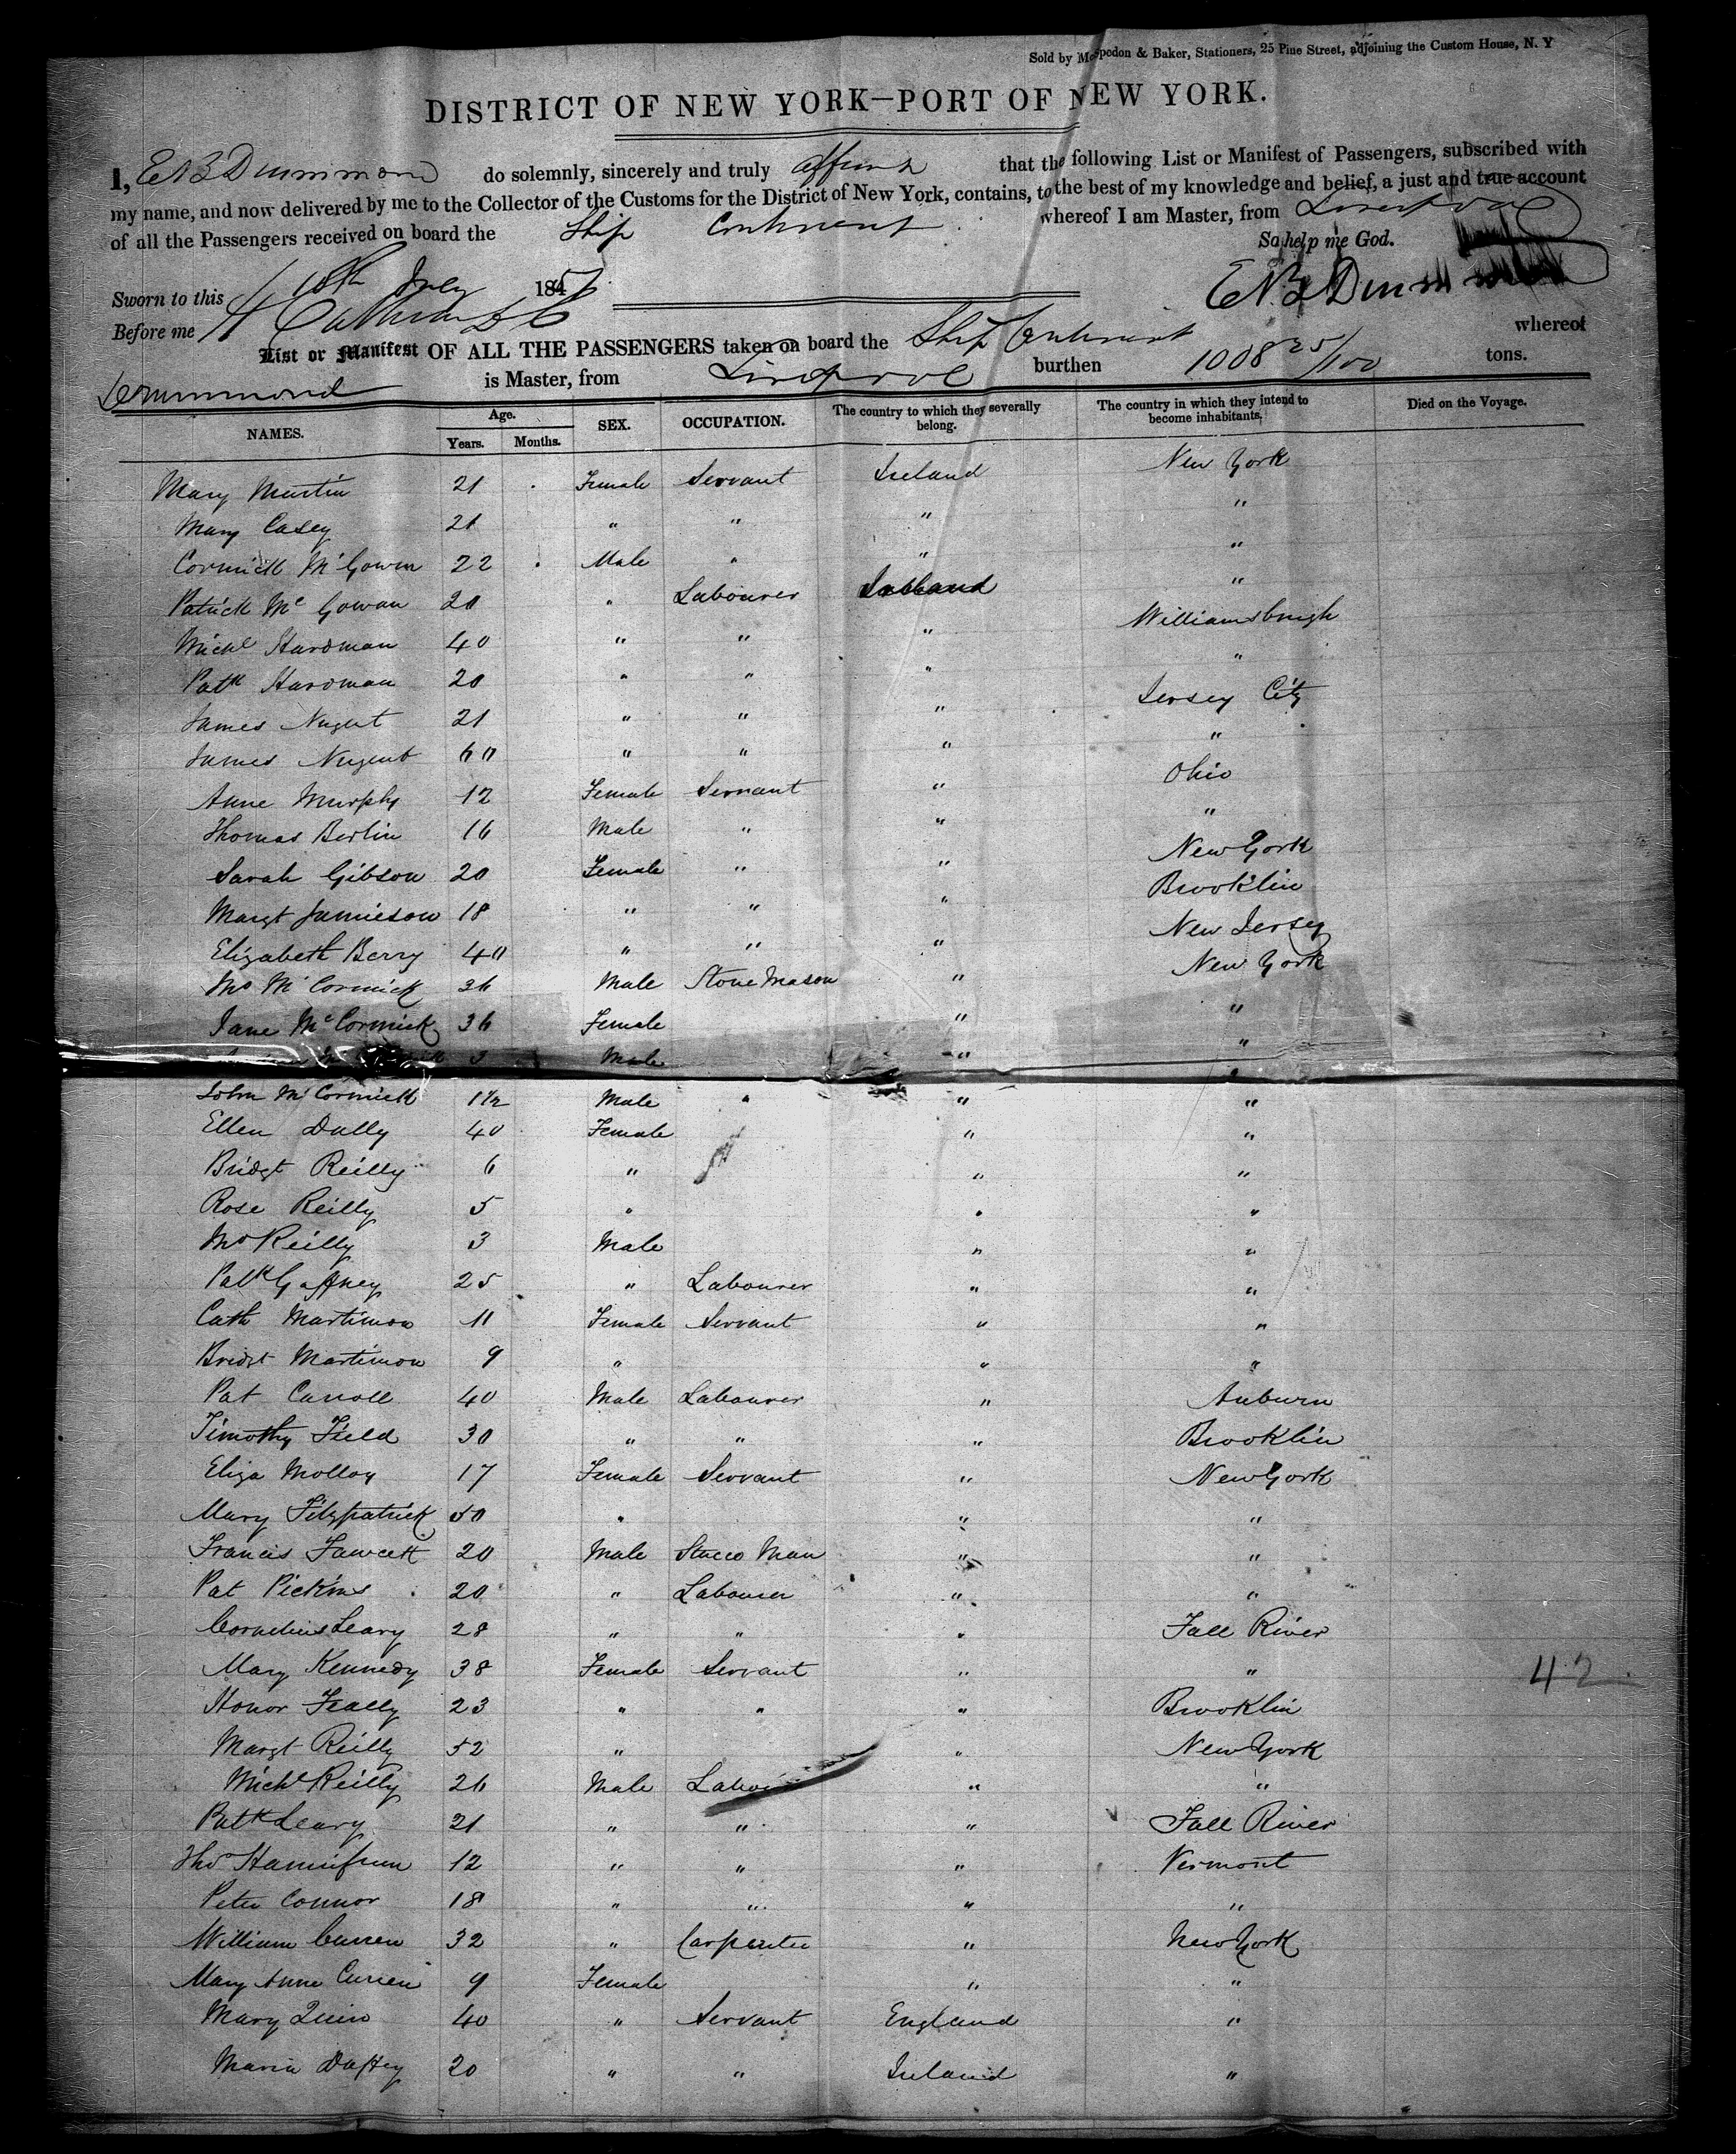 Sold by Mospedon & Baker, Stationers, 25 Pine Street, adjoining the Custom House, N. Y
DISTRICT OF NEW YORK—PORT OF NEW YORK.
I, E N B Drummond do solemnly, sincerely and truly affirm that the following List or Manifest of Passengers, subscribed with
my name, and now delivered by me to the Collector of the Customs for the District of New York, contains, to the best of my knowledge and belief, a just and true account
of all the Passengers received on board the Ship Continent whereof I am Master, from Liverpool
So help me God.
Sworn to this 10th July 185
Before me
List or Manifest OF ALL THE PASSENGERS taken on board the Ship Continent whereof
Drummond is Master, from Liverpool burthen 1008 25/100 tons.
NAMES. Age. Years. Months. SEX. OCCUPATION. The country to which they severally belong. The country in which they intend to become inhabitants. Died on the Voyage.
Mary Martin 21 Female Servant Ireland New York
Mary Casey 21 " " " "
Cormick McGowan 22 Male " " "
Patrick Mc Gowan 20 " Labourer Ireland "
Michl Hardman 40 " " " Williamsburgh
Patk Hardman 20 " " " "
James Nugent 21 " " " Jersey City
James Nugent 60 " " " "
Anne Murphy 12 Female Servant " Ohio
Thomas Berlin 16 Male " " "
Sarah Gibson 20 Female " " New York
Margt Jamieson 18 " " " Brooklin
Elizabeth Berry 40 " " " New Jersey
Mc Cormick 36 Male Stone Mason " New York
Jane McCormick 36 Female " "
3 Male " "
John McCormick 1½ Male " " "
Ellen Dully 40 Female " "
Bridgt Reilly 6 " " "
Rose Reilly 5 " " "
Reilly 3 Male " "
Patk Gaffney 25 " Labourer " "
Cath Martimow 11 Female Servant " "
Bridgt Martimow 9 " " "
Pat Carroll 40 Male Labourer " Auburn
Timothy Field 30 " " " Brooklin
Eliza Molloy 17 Female Servant " New York
Mary Fitzpatrick 50 " " "
Francis Fawcett 20 Male Stucco Man " "
Pat Pickins 20 " Labourer " "
Cornelius Leary 28 " " " Fall River
Mary Kennedy 38 Female Servant " "
42
Honor Feally 23 " " " Brooklin
Margt Reilly 52 " " New York
Michl Reilly 26 Male " "
Patk Leary 21 " " " Fall River
Thos 12 " " " Vermont
Peter Connor 18 " " " "
William Curren 32 " Carpenter " New York
Mary Anne Curren 9 Female " "
Mary Quin 40 " Servant England "
Maria Daffey 20 " " Ireland "